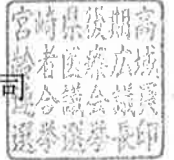 宮崎県後期高
齢者医療広域
連合議会議員
選挙選挙長印
司